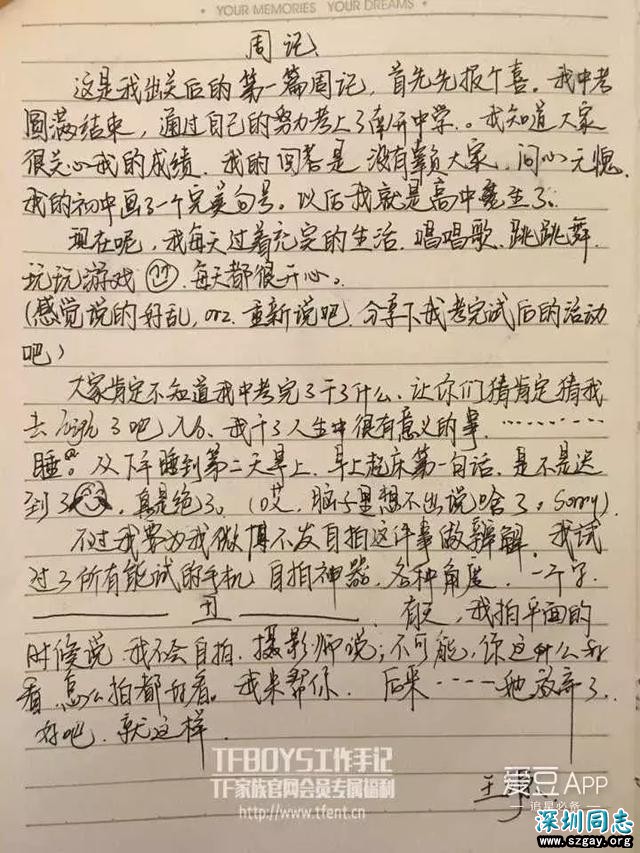 YOUR MEMORIES YOUR DREAMS
周记
这是我出关后的第一篇周记,首先先报个喜。我中考
圆满结束,通过自己的努力考上了南开中学。我知道大家
很关心我的成绩.我的回答是没有辜负大家.问心无愧.
我的初中画了一个完美句号。以后我就是高中生了。
现在呢,我每天过着充实的生活.唱唱歌.跳跳舞.
玩玩游戏 每天都很开心。
(感觉说的好乱,orz.重新说吧.分享下我考完试后的活动
吧)
大家肯定不知道我中考完了干了什么.让你们猜肯定猜我
去 了吧 .我干了人生中很有意义的事.………
睡。从下午睡到第二天早上.早上起床第一句话.是不是迟
到了 ,真是绝了。(哎,脑子里想不出说啥了。sorry)
不过我要为我微博不发自拍这件事做辩解.我试
过了所有能试的手机.自拍神器.各种角度.一个字.
丑 .有次,我拍平面的
时候说.我不会自拍.摄影师说;不可能,你这种么好
看.怎么拍都好看。我来帮你.后来……她放弃了.
好吧.就这样.
TFBOYS工作手记
TF家族官网会员专属福利
http://www.tfent.cn
王
爱豆APP
追星必备
深圳同志
www.szgay.org